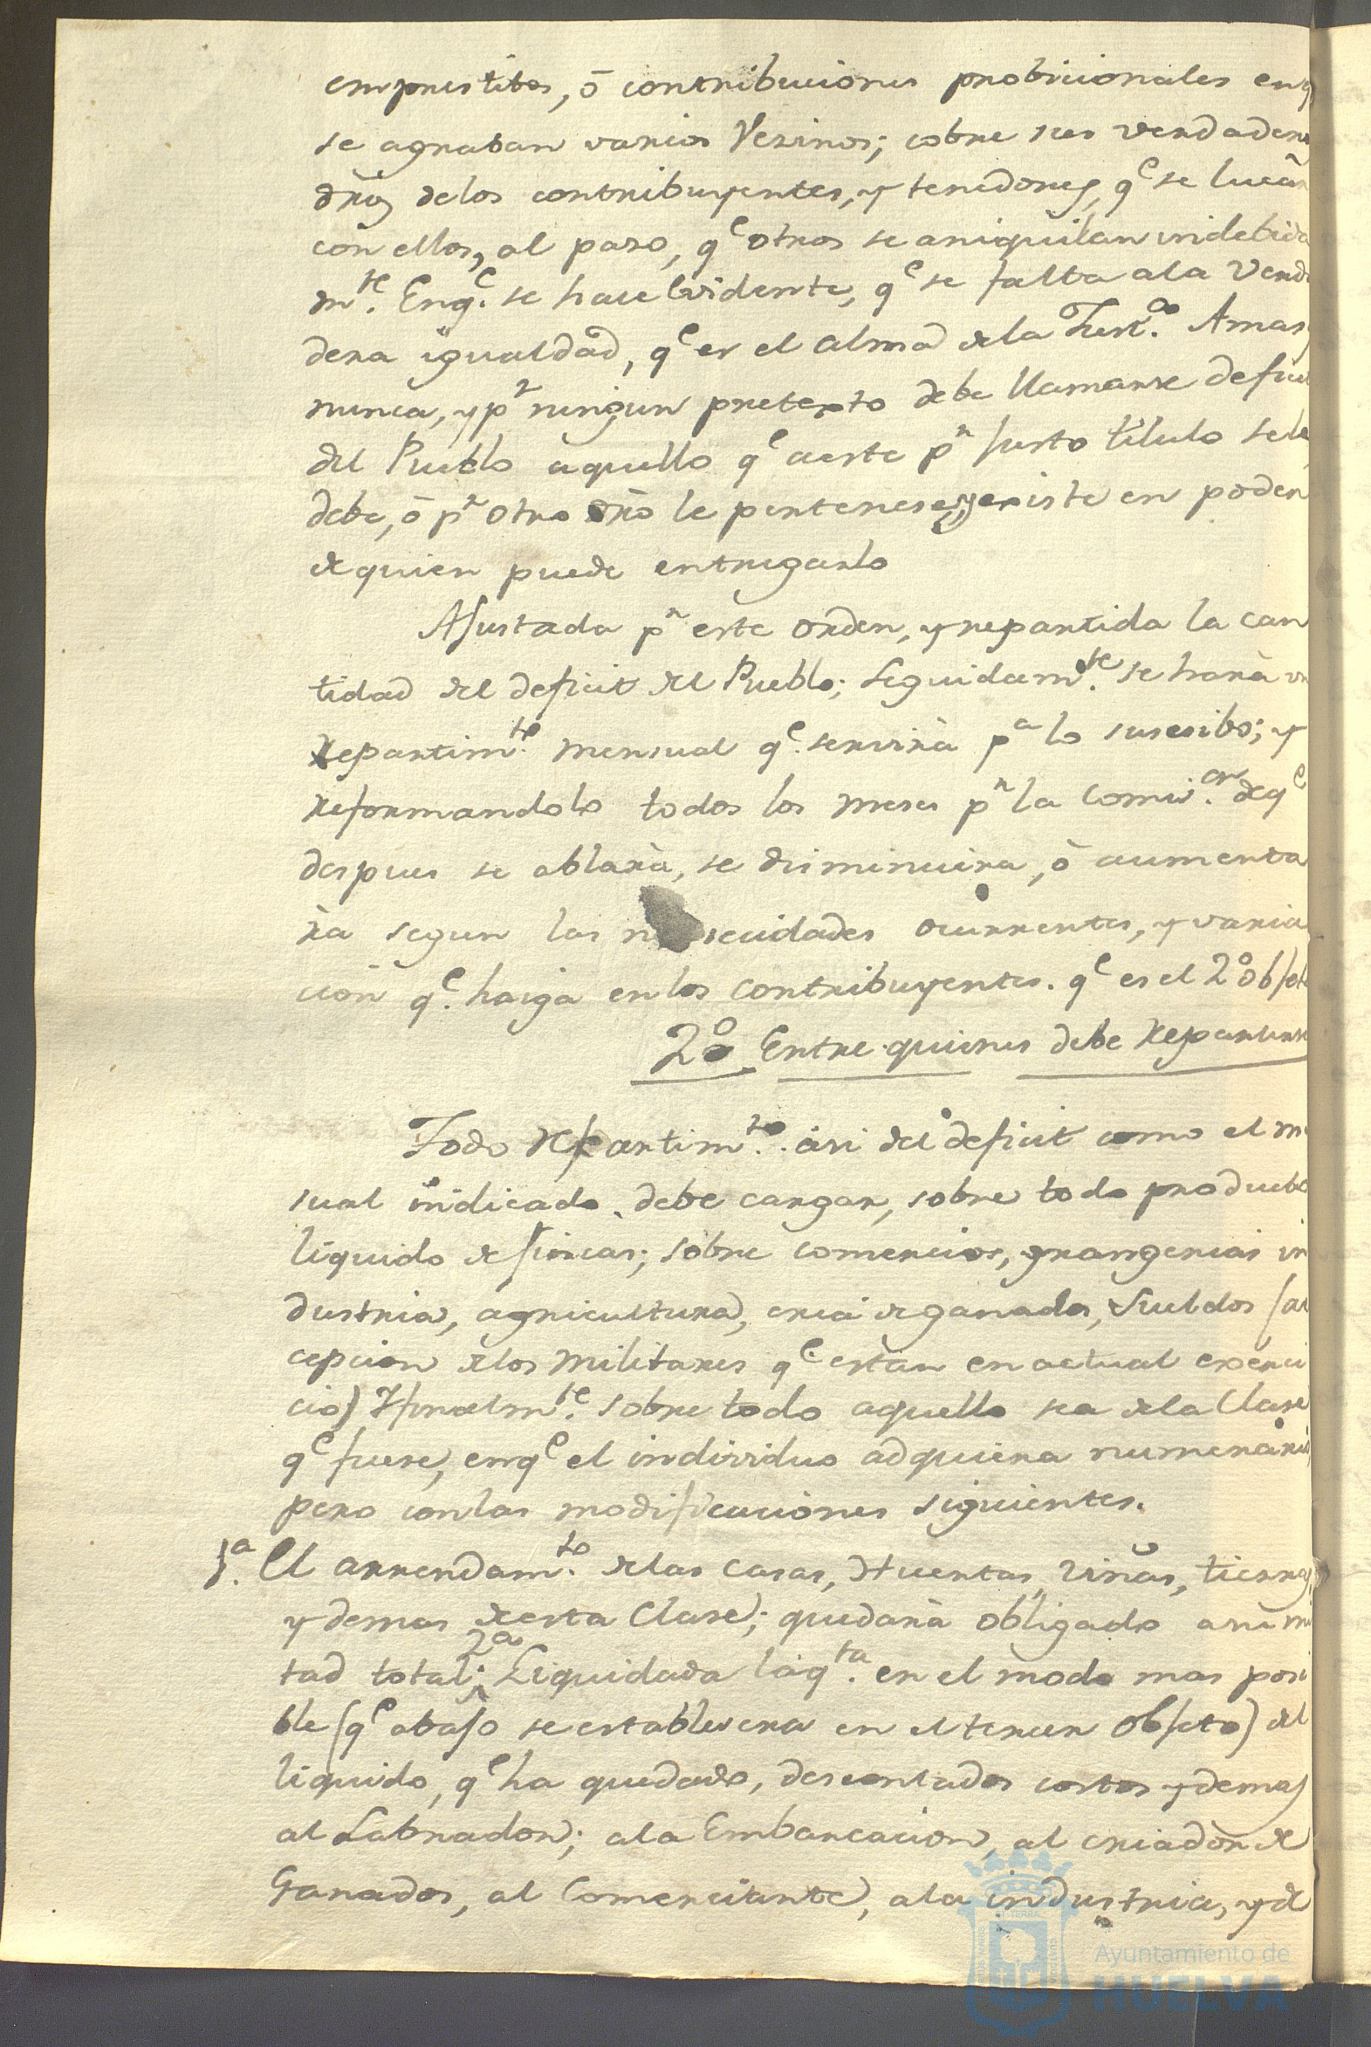 emprestitos, ó contribuciones probicionales en q
se agraban varios Vezinos; cobre sus verdadero
dros delos contribuyentes, y tenedores, qe se lucan
con ellos, al paso, qe otros se aniquilan indebida
mte. Enqe. se hace evidente, qe se falta ala Verda
dera igualdad, qe es el alma dela Just.a Amas,
nunca, y pr ningun pretexto debe llamarse defici
del Pueblo aquello qe a este pr justo titulo sele
debe, ó pr otro dro le pertenese, y existe en poder
de quien puede entregarlo
Ajustada pr este orden, y repartida la can
tidad del deficit del Pueblo; seguidamte. se hará un
repartimto. mensual qe. servirá pa lo susesibo; y
reformandolo todos los meses pr la Comis.on de qe
despues se ablará, se disminuira, ó aumenta
rá segun las nesecidades ocurrentes, y varia
ción qe. haiga en los contribuyentes. qe es el 2o objeto
2o Entre quienes debe Repartirse
Todo Repartimto. asi del deficit como el m
sual indicado, debe cargar, sobre todo producto
liquido de fincas; sobre comercios, grangerias in
dustria, agricultura, cria de ganados, Sueldos (a
cepcion delos militares qe estan en actual exerci
cio) Y finalmte. sobre todo aquello sea dela Clase
qe fuere, enqe el individuo adquiera numerario
pero con las modificaciones siguientes.
1a. El arrendamto. delas casas, Huertas, Viñas, tierras,
y demas de esta Clase; quedará obligado a su mi
tad total; 2a Liquidada la qta. en el modo mas posi
ble (qe abajo se establecera en el tercer objeto) del
liquido, qe ha quedado, descontados costos y demas
al Labrador; ala Embarcacion, al criador de
Ganados, al Comerciante, ala industria, y de
Ayuntamiento de
HUELVA